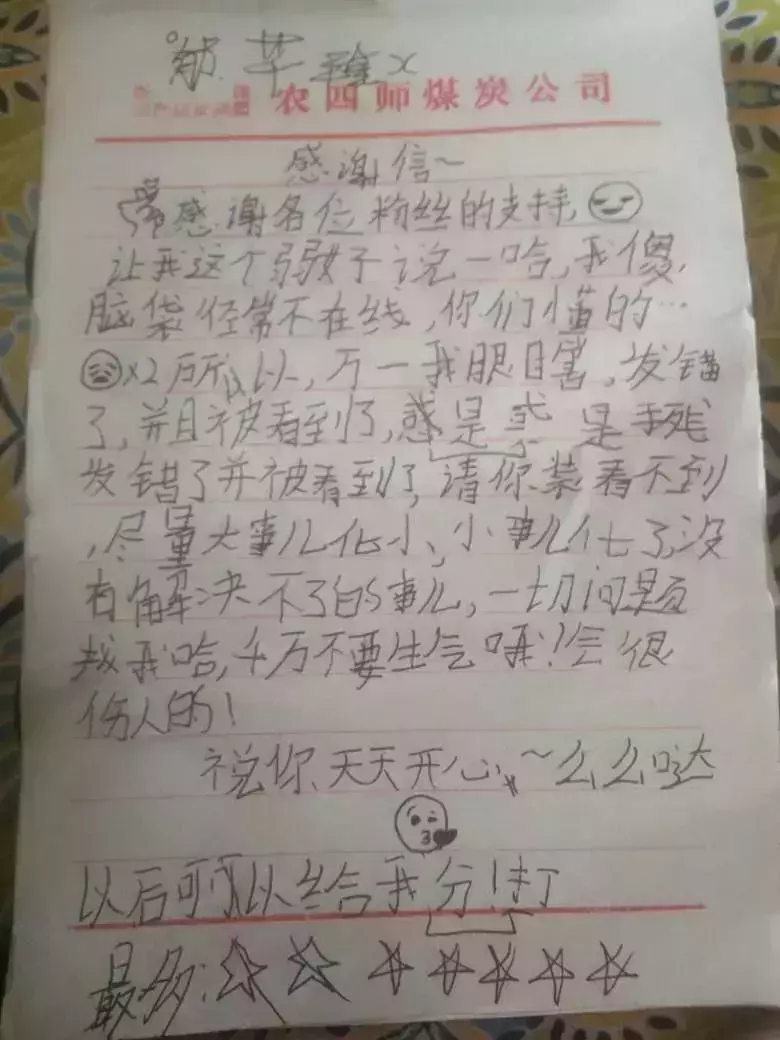 农四师煤炭公司
感谢信~
感谢各位粉丝的支持
让我这个弱女子说一哈,我傻,
脑袋经常不在线,你们懂的…
x2所以以,万一我眼瞎,发错
了,并且被看到了,惑是惑是手残
发错了并被看到了,请你装看不到
,尽量大事儿化小,小事儿化了,没
有解决不了的事儿,一切问题
找我哈,千万不要生气哦!会很
伤人的!
祝你天天开心~么么哒
以后可以给我分!打
最多:☆☆☆☆☆☆☆